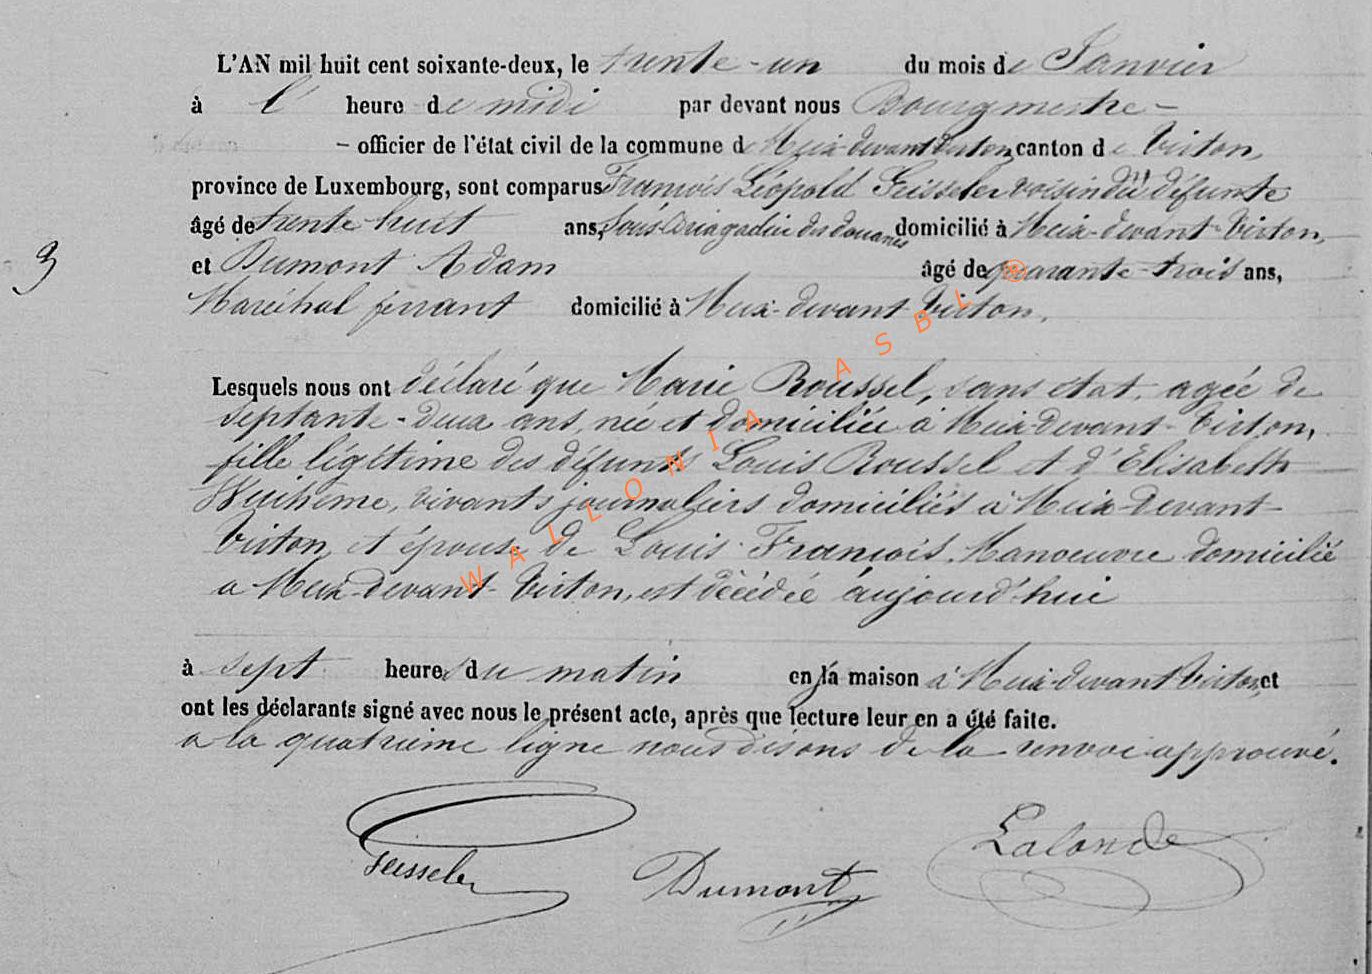 L'AN mil huit cent soixante-deux, le trente-un du mois de Janvier
à l' heure de midi par devant nous Bourgmestre -
- officier de l'état civil de la commune de Meix-devant-Virton canton de Virton,
province de Luxembourg, sont comparus François Léopold Geisseler voisin du défunte
âgé de trente huit ans, Sous-Brigadier des douanes domicilié à Meix-devant-Virton,
3
et Dumont Adam âgé de quarante-trois ans,
Maréchal ferrant domicilié à Meix-devant-Virton.
Lesquels nous ont déclaré que Marie Roussel, sans état, agée de
septante-deux ans, née et domiciliée à Meix-devant-Virton,
fille légitime des défunts Louis Roussel et d'Élisabeth
vivants journaliers domiciliés à Meix-devant-
Virton, et épouse de Louis François, Manoeuvre domicilié
a Meix-devant-Virton, est décédée aujourd'hui
à sept heures du matin en la maison à Meix-devant Virton, et
ont les déclarants signé avec nous le présent acte, après que lecture leur en a été faite.
a la quatrième ligne nous disons de la renvoi approuvé.
Geisseler Dumont Lalonde
WALLONIA ASBL ®